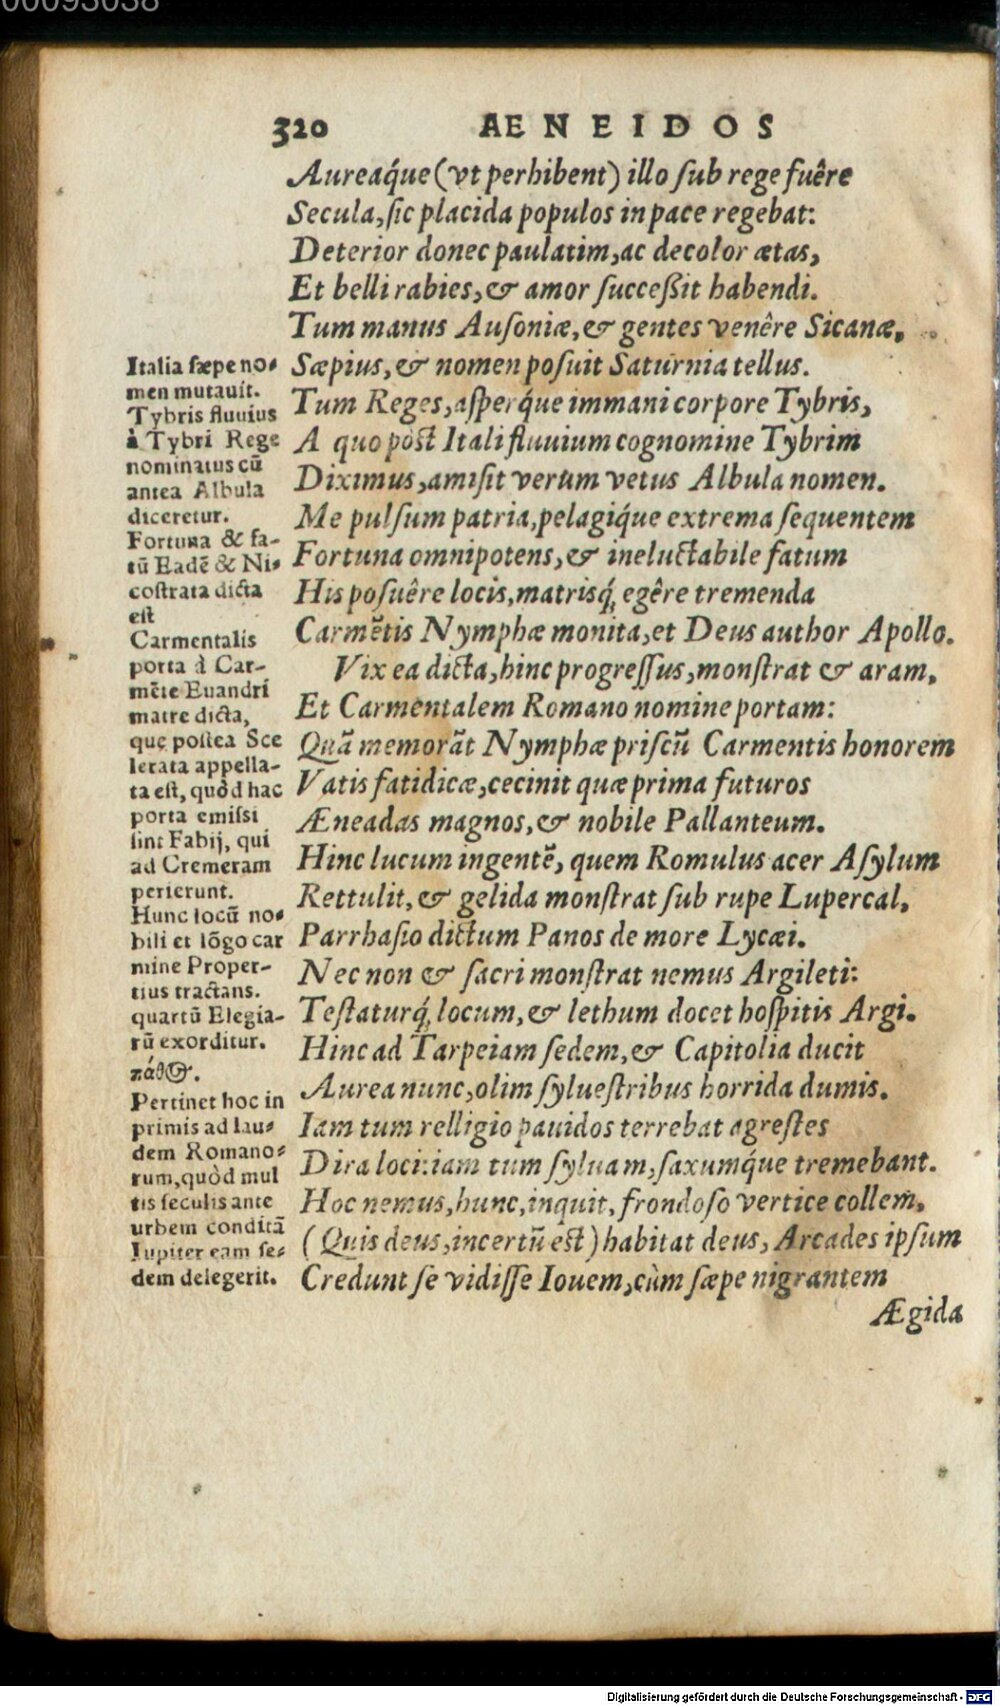 00093038
320 AENEIDOS
Aureaq́ue (vt perhibent) illo ſub rege fuêre
Secula, ſic placida populos in pace regebat:
Deterior donec paulatim, ac decolor ætas,
Et belli rabies, & amor ſucceßit habendi.
Tum manus Auſoniæ, & gentes venêre Sicanæ,
Sæpius, & nomen poſuit Saturnia tellus.
Tum Reges, aſperq́ue immani corpore Tybris,
A quo pòst Itali fluuium cognomine Tybrim
Diximus, amiſit verum vetus Albula nomen.
Me pulſum patria, pelagiq́ue extrema ſequentem
Fortuna omnipotens, & ineluctabile fatum
His poſuêre locis, matrisq́; egêre tremenda
Carmẽtis Nymphæ monita, et Deus author Apollo.
Vix ea dicta, hinc progreſſus, monſtrat & aram,
Et Carmentalem Romano nomine portam:
Quã memorãt Nymphæ priſcũ Carmentis honorem
Vatis fatidicæ, cecinit quæ prima futuros
Æneadas magnos, & nobile Pallanteum.
Hinc lucum ingentẽ, quem Romulus acer Aſylum
Rettulit, & gelida monſtrat ſub rupe Lupercal,
Parrhaſio dictum Panos de more Lycæi.
Nec non & ſacri monſtrat nemus Argileti:
Teſtaturq́; locum, & lethum docet hoſpitis Argi.
Hinc ad Tarpeiam ſedem, & Capitolia ducit
Aurea nunc, olim ſylueſtribus horrida dumis.
Iam tum relligio pauidos terrebat agreſtes
Dira loci: iam tum ſyluam, ſaxumq́ue tremebant.
Hoc nemus, hunc, inquit, frondoſo vertice collem,
(Quis deus, incertũ est) habitat deus, Arcades ipſum
Credunt ſe vidiſſe Iouem, cùm ſæpe nigrantem
Ægida
Italia ſæpe no-
men mutauit.
Tybris fluuius
à Tybri Rege
nominatus cũ
antea Albula
diceretur.
Fortuna & fa-
tũ Eadẽ & Ni-
coſtrata dicta
eſt
Carmentalis
porta à Car-
mẽte Euandri
matre dicta,
quę poſtea Sce
lerata appella-
ta eſt, quòd hac
porta emiſsi
ſint Fabij, qui
ad Cremeram
perierunt.
Hunc locũ no-
bili et lõgo car
mine Proper-
tius tractans.
quartũ Elegia-
rũ exorditur.
πάθος.
Pertinet hoc in
primis ad lau-
dem Romano-
rum, quòd mul
tis ſeculis ante
urbem conditã
Iupiter eam ſe-
dem delegerit.
Digitalisierung gefördert durch die Deutsche Forschungsgemeinschaft - DFG